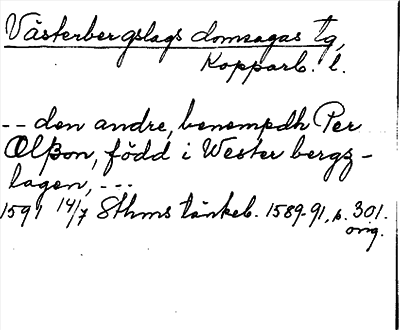 Västerbergslags domsagas tg,
Kopparb. l.
-- den andre, benempdh Per
Olßon, född i Wester bergz-
lagen, ---
1591 14/7 Sthms tänkeb. 1589-91, s. 301.
orig.